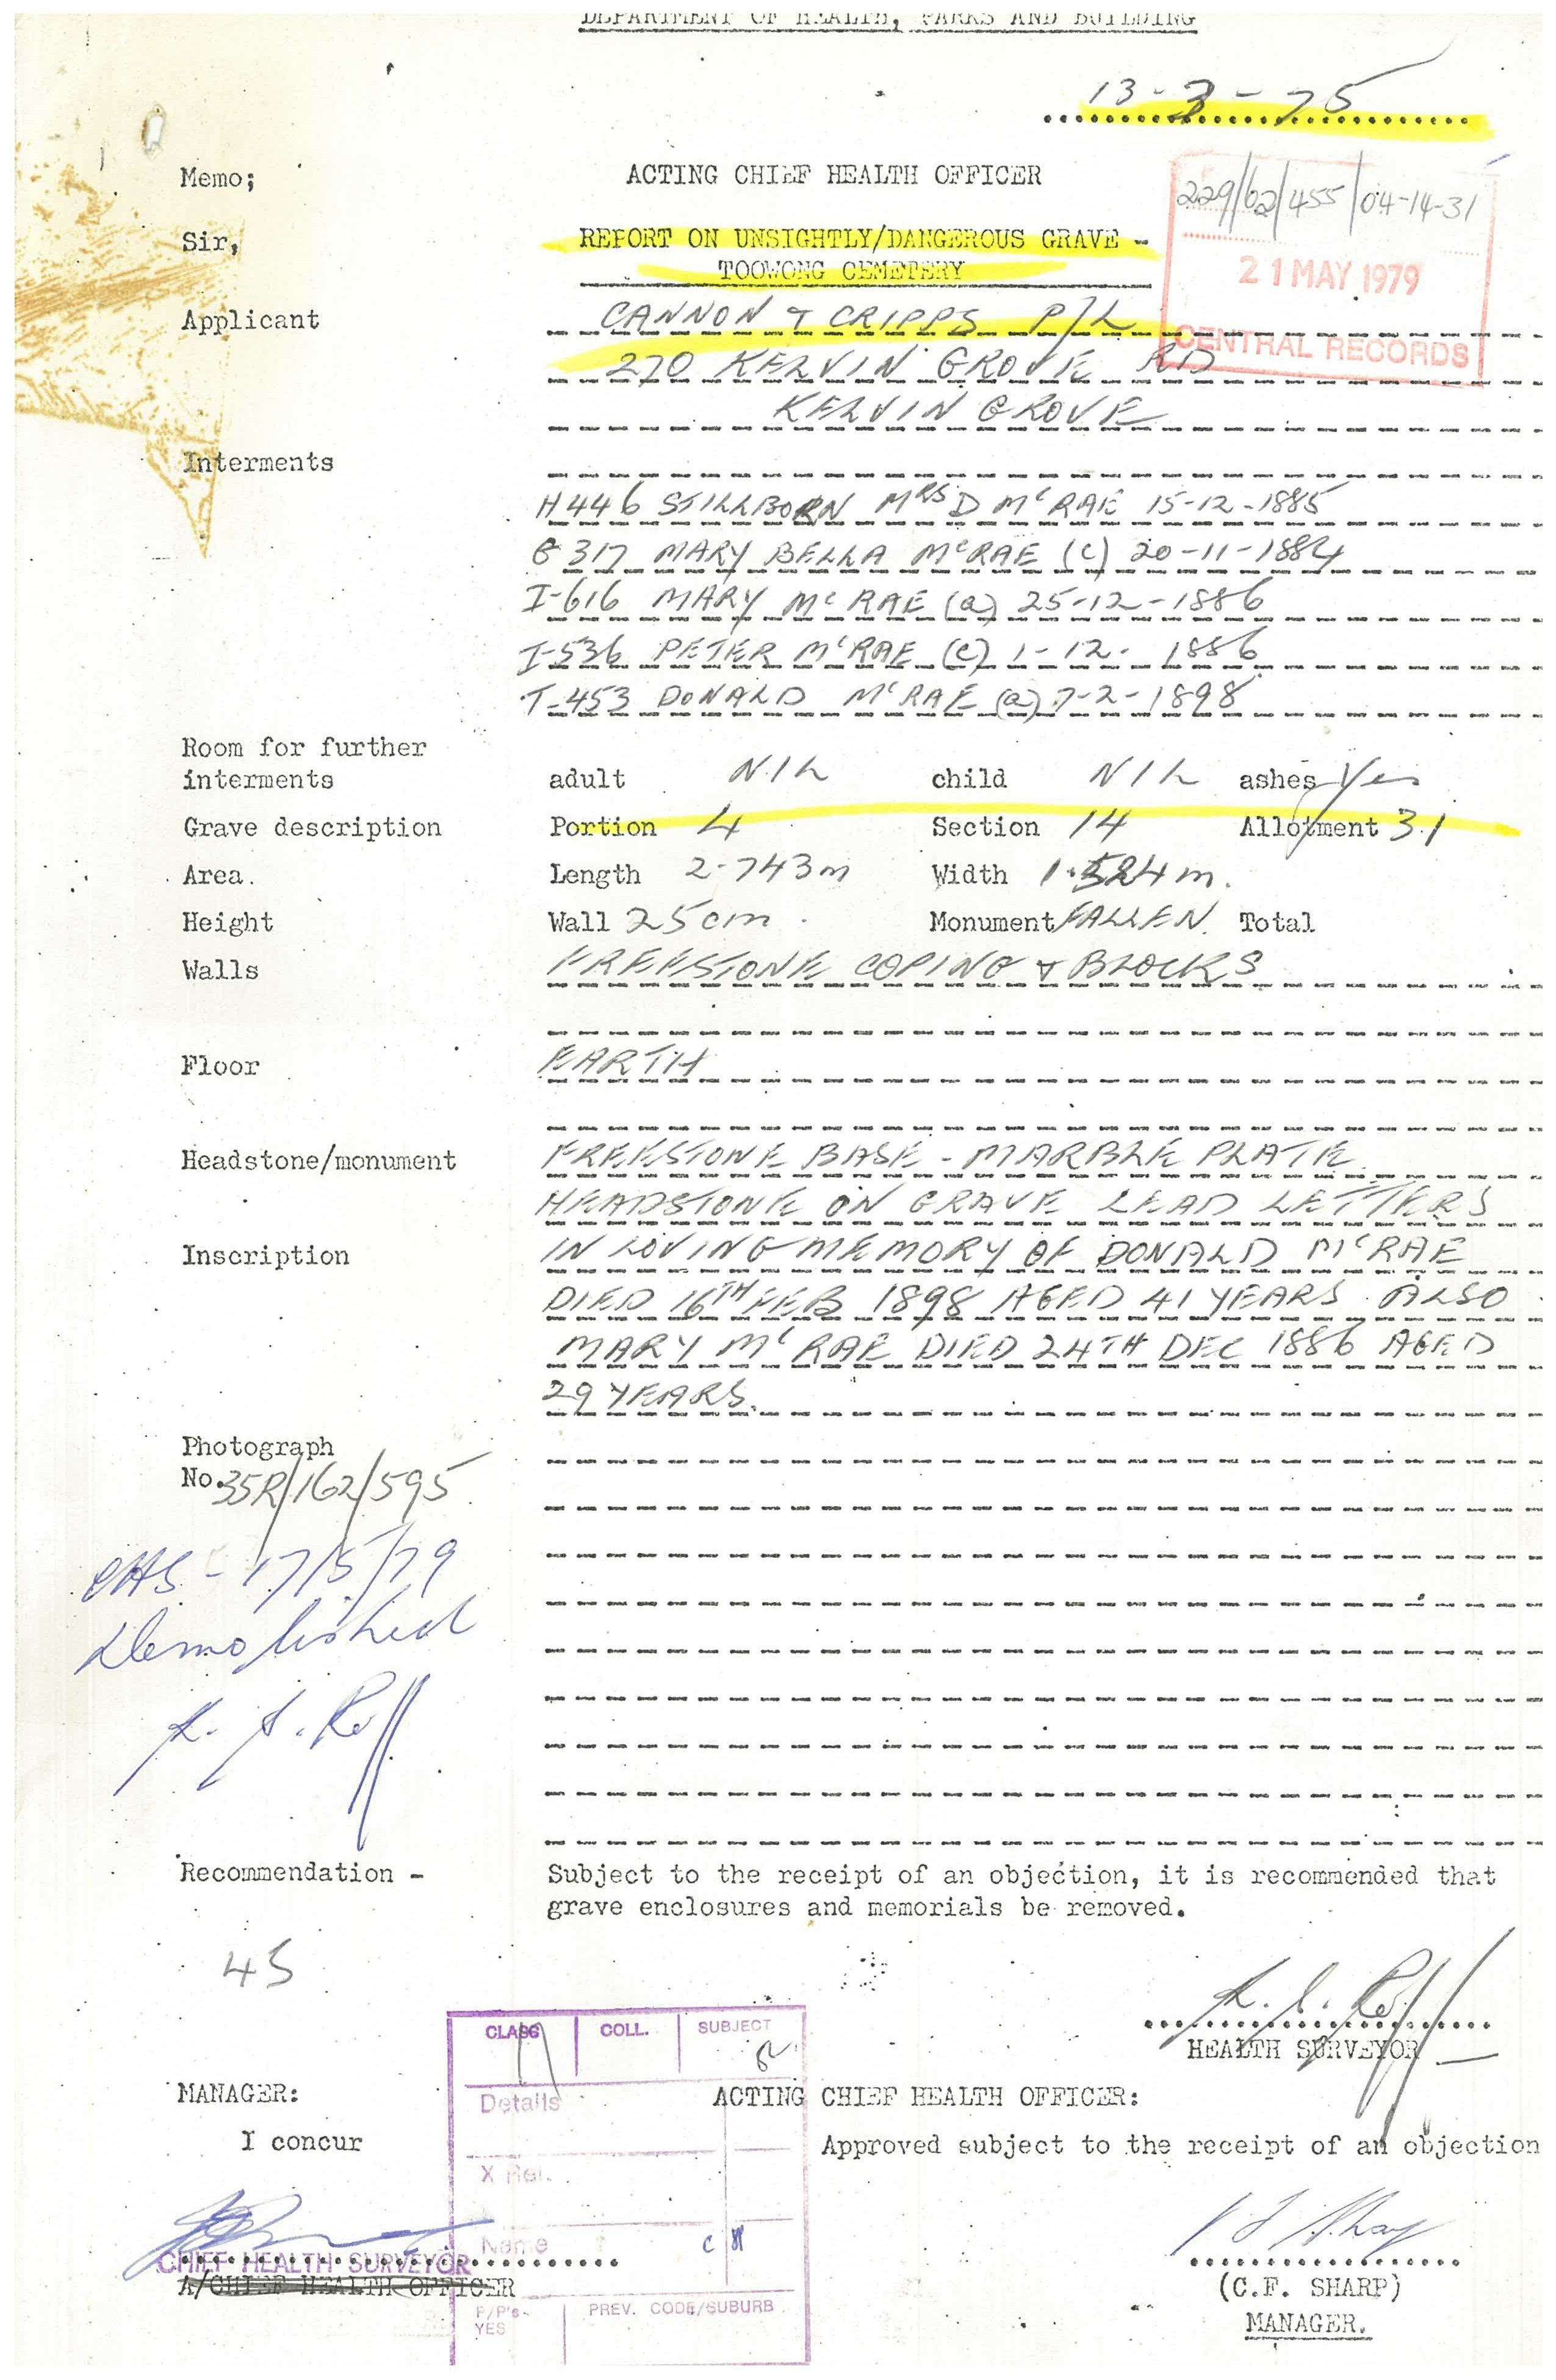 DEPARTMENT OF HEALTH, PARKS AND BUILDING
13-3-75
Memo;
ACTING CHIEF HEALTH OFFICER
229/62/455/04-14-31
Sir,
REPORT ON UNSIGHTLY/DANGEROUS GRAVE -
TOOWONG CEMETERY
21 MAY 1979
CENTRAL RECORDS
Applicant CANNON & CRIPPS P/L
270 KELVIN GROVE RD
KELVIN GROVE
Interments
H446 STILLBORN MRS D McRAE 15-12-1885
G 317 MARY BELLA McRAE (c) 20-11-1884
I-616 MARY McRAE (a) 25-12-1886
I-536 PETER McRAE (c) 1-12-1886
T-453 DONALD McRAE (a) 7-2-1898
Room for further
interments adult NIL child NIL ashes Yes
Grave description Portion 4 Section 14 Allotment 31
Area. Length 2.743m Width 1.524m.
Height Wall 25cm. Monument FALLEN. Total
Walls FREESTONE COPING & BLOCKS
Floor EARTH
Headstone/monument FREESTONE BASE - MARBLE PLATE
HEADSTONE ON GRAVE LEAD LETTERS
Inscription IN LOVING MEMORY OF DONALD McRAE
DIED 16TH FEB 1898 AGED 41 YEARS. ALSO
MARY McRAE DIED 24TH DEC 1886 AGED
29 YEARS.
Photograph
No. 35R/162/595
17/5/79
Demolished
Recommendation - Subject to the receipt of an objection, it is recommended that
grave enclosures and memorials be removed.
45
HEALTH SURVEYOR
CLASS COLL. SUBJECT
Details
X Ref.
Name
P/P's- YES
PREV. CODE/SUBURB
MANAGER: ACTING CHIEF HEALTH OFFICER:
I concur Approved subject to the receipt of an objection
CHIEF HEALTH SURVEYOR
A/CHIEF HEALTH OFFICER
(C.F. SHARP)
MANAGER.